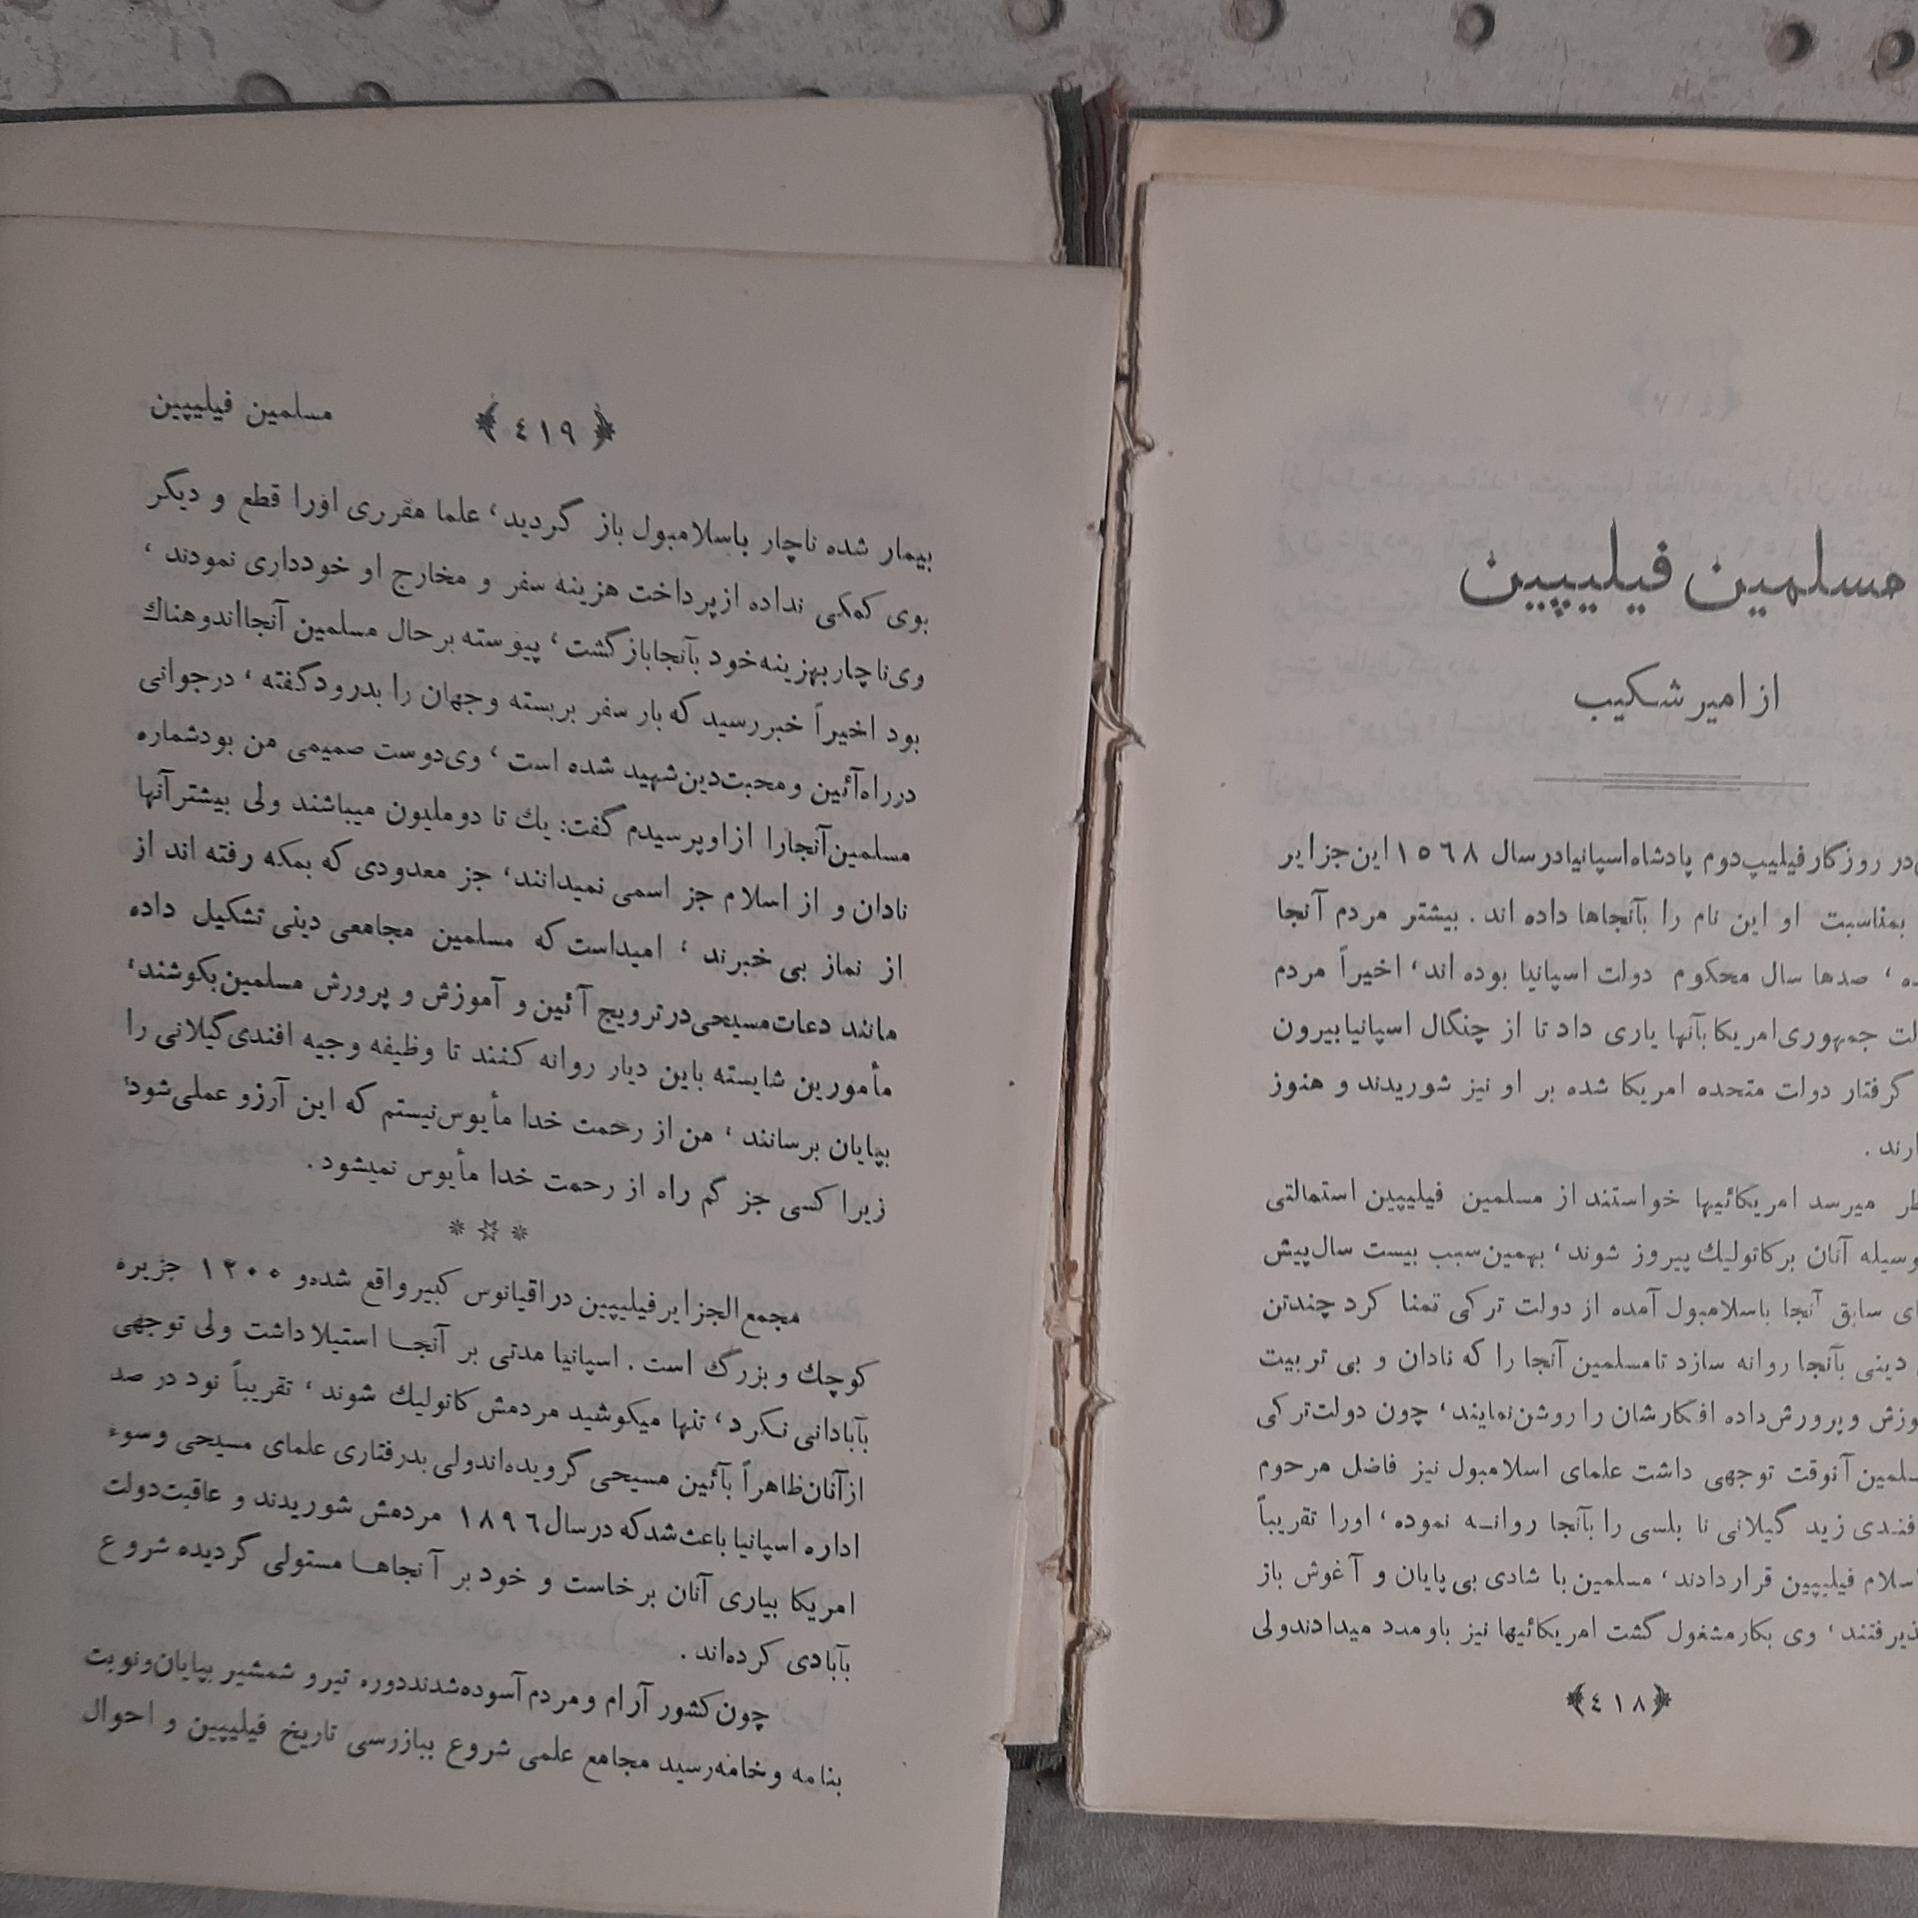 مسلمین فیلیپین
از امیر شکیب
در روزگار فیلیپ دوم پادشاه اسپانیا در سال ۱۵۶۸ این جزایر
بمناسبت او این نام را بآنجاها داده اند . بیشتر مردم آنجا
صدها سال محکوم دولت اسپانیا بوده اند ، اخیراً مردم
جمهوری امریکا بآنها یاری داد تا از چنگال اسپانیا بیرون
گرفتار دولت متحده امریکا شده بر او نیز شوریدند و هنوز
میرسد امریکائیها خواستند از مسلمین فیلیپین استمالتی
وسیله آنان بر کاتولیك پیروز شوند ، بهمین سبب بیست سال پیش
سابق آنجا باسلامبول آمده از دولت ترکی تمنا کرد چند تن
دینی بآنجا روانه سازد تا مسلمین آنجا را که نادان و بی تربیت
و پرورش داده افکارشان را روشن نمایند ، چون دولت ترکی
آنوقت توجهی داشت علمای اسلامبول نیز فاضل مرحوم
زید گیلانی نا بلسی را بآنجا روانـه نموده ، اورا تقریباً
فیلیپین قرار دادند ، مسلمین با شادی بی پایان و آغوش باز
وی بکار مشغول گشت امریکائیها نیز باو مدد میدادند ولی
﴿٤١٨﴾
﴿٤١٩﴾ مسلمین فیلیپین
بیمار شده ناچار باسلامبول باز گردید ، علما مقرری اورا قطع و دیگر
بوی کمکی نداده از پرداخت هزینه سفر و مخارج او خودداری نمودند ،
وی ناچار بهزینه خود بآنجا باز گشت ، پیوسته بر حال مسلمین آنجا اندوهناك
بود اخیراً خبر رسید که بار سفر بربسته و جهان را بدرود گفته ، در جوانی
در راه آئین و محبت دین شهید شده است ، وی دوست صمیمی من بود شماره
مسلمین آنجا را از او پرسیدم گفت : یك تا دو ملیون میباشند ولی بیشتر آنها
نادان و از اسلام جز اسمی نمیدانند ، جز معدودی که بمکه رفته اند از
از نماز بی خبرند ، امید است که مسلمین مجامعی دینی تشکیل داده
مانند دعات مسیحی در ترویج آئین و آموزش و پرورش مسلمین بکوشند ،
مأمورین شایسته باین دیار روانه کنند تا وظیفه وجیه افندی گیلانی را
بپایان برسانند ، من از رحمت خدا مأیوس نیستم که این آرزو عملی شود ،
زیرا کسی جز گم راه از رحمت خدا مأیوس نمیشود .
* ☆ *
مجمع الجزایر فیلیپین در اقیانوس کبیر واقع شده و ۱۲۰۰ جزیره
کوچك و بزرگ است . اسپانیا مدتی بر آنجـا استیلا داشت ولی توجهی
بآبادانی نکرد ، تنها میکوشید مردمش کاتولیك شوند ، تقریباً نود در صد
از آنان ظاهراً بآئین مسیحی گرویده اند ولی بدرفتاری علمای مسیحی و سوء
اداره اسپانیا باعث شد که در سال ۱۸۹۶ مردمش شوریدند و عاقبت دولت
امریکا بیاری آنان برخاست و خود بر آنجاهـا مستولی گردیده شروع
بآبادی کرده اند .
چون کشور آرام و مردم آسوده شدند دوره تیر و شمشیر بپایان و نوبت
بنامه و خامه رسید مجامع علمی شروع ببازرسی تاریخ فیلیپین و احوال